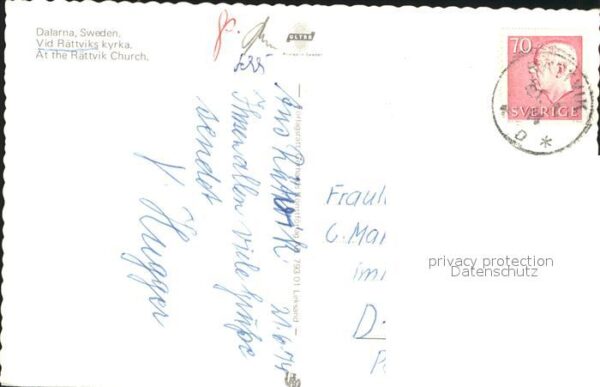 Dalarna, Sweden.
Vid Rättviks kyrka.
At the Rättvik Church.
ULTRA
70
SVERIGE
Aus Rättvik 21.6.74
Ihnen allen viele Grüße
sendet
V. Hugger
Fraul
C. Mar
im
D-
privacy protection
Datenschutz
793 01 Leksand